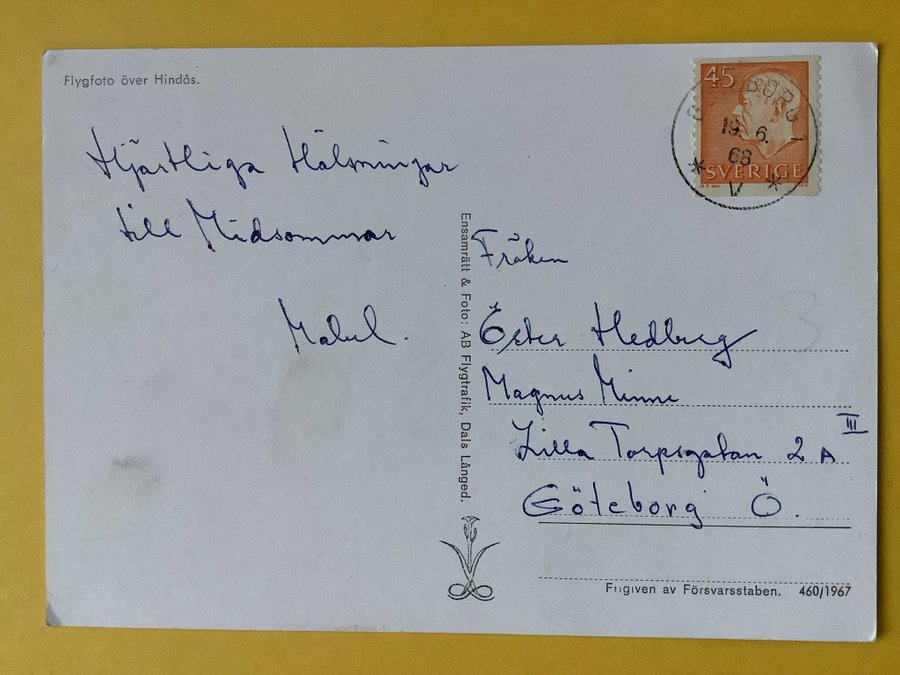 Flygfoto över Hindås.
Hjärtliga Hälsningar
till Midsommar
Mabel.
Ensamrätt & Foto: AB Flygtrafik, Dals Långed.
45
SVERIGE
GÖTEBORG 1
19. 6.
68
* V *
Fröken
Ester Hedberg
Magnus Minne
Lilla Torpsgatan 2 A III
Göteborg Ö.
3
Frigiven av Försvarsstaben. 460/1967